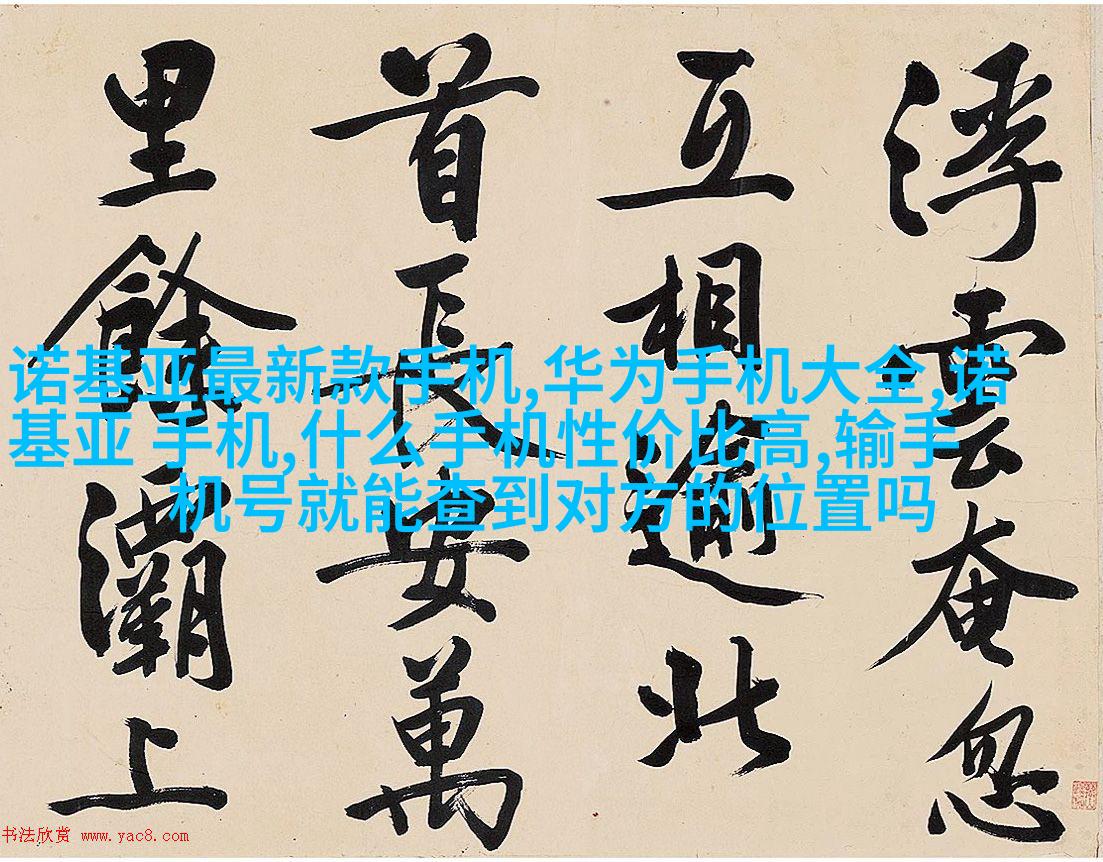 浮雲奄忽
互相逾北
首長安萬
里餘灞上
诺基亚最新款手机,华为手机大全,诺
基亚 手机,什么手机性价比高,输手
机号就能查到对方的位置吗
书法欣赏 www.yac8.com